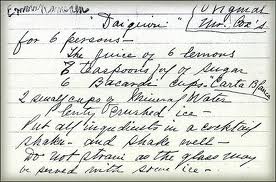 "Daiquiri"
Original
Mr. Cox's.
for 6 persons—
The juice of 6 lemons
6 teaspoons full of sugar
6 Bacardi cups "Carta Blanca"
2 small cups of Mineral Water
Plenty crushed ice—
Put all ingredients in a cocktail
shaker and shake well—
Do not strain as the glass may
be served with some ice—